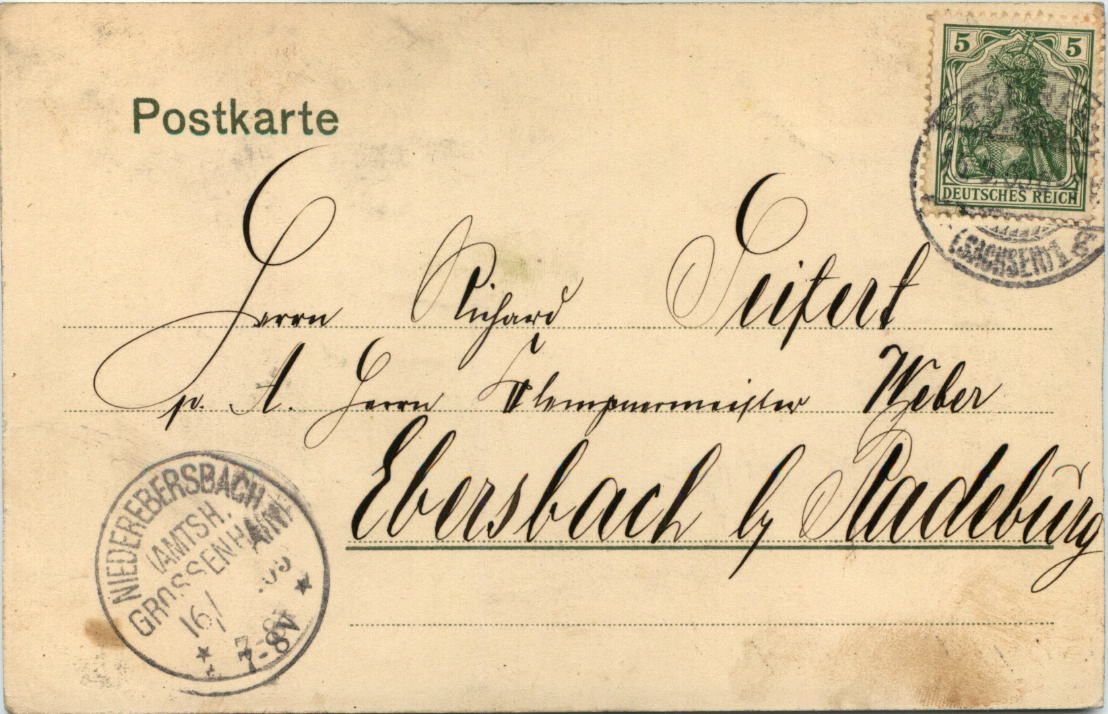 Postkarte
5 5
DEUTSCHES REICH
(SACHSEN)
Herrn Richard Seifert
p. A. Herrn Klempnermeister Weber
Ebersbach b/ Radeburg
NIEDEREBERSBACH
(AMTSH.
GROSSENHAIN)
16/ 05
7-8V